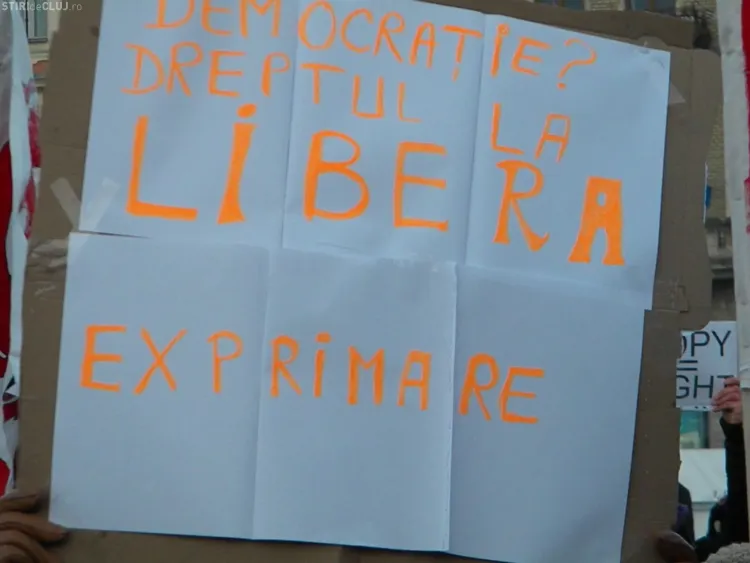 STIRIdeCLUJ.ro
DEMOCRAȚIE?
DREPTUL LA
LiBERA
EXPRiMARE
OPY
=
GHT